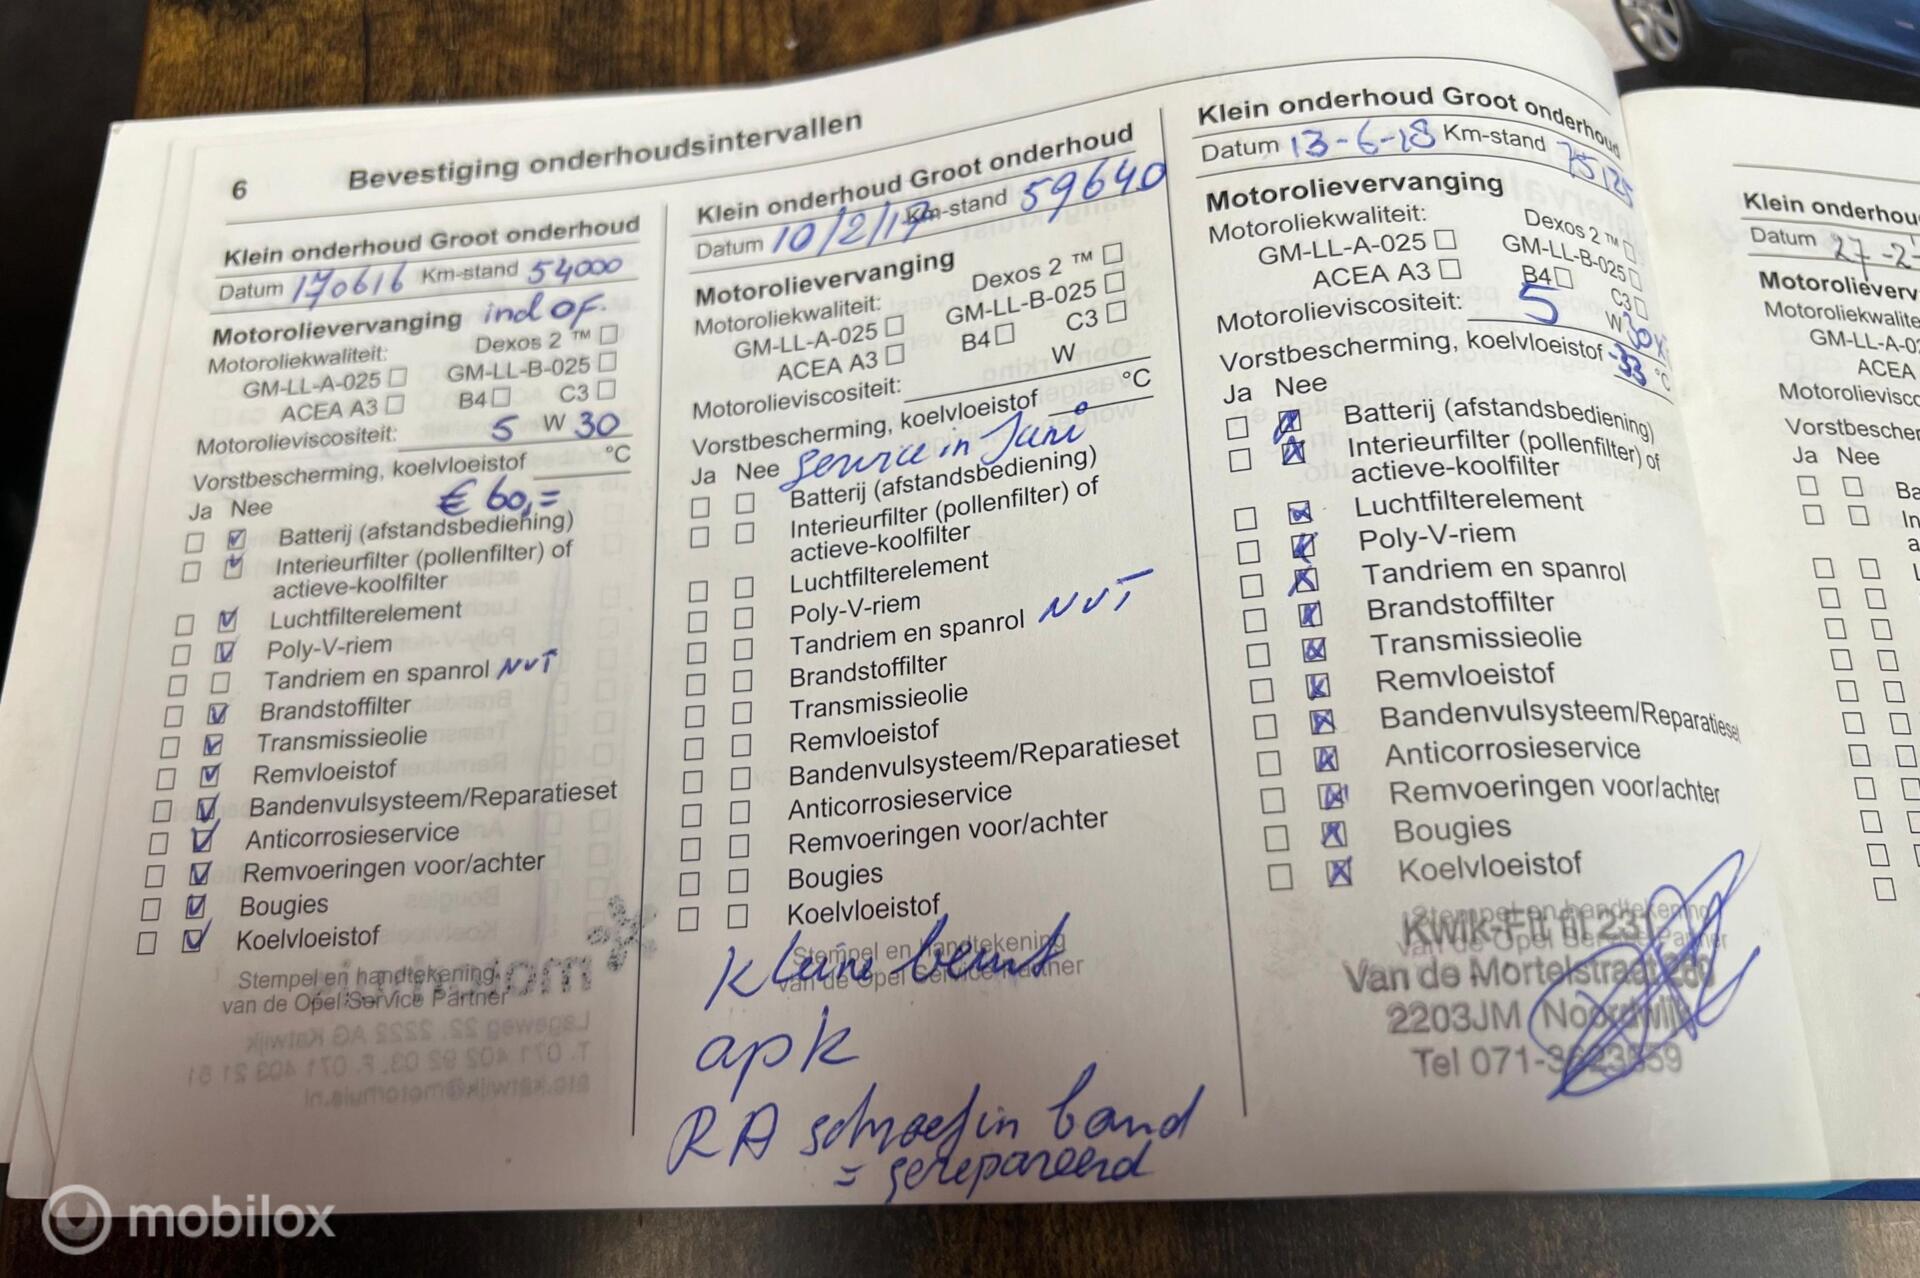 6 Bevestiging onderhoudsintervallen
Klein onderhoud Groot onderhoud
Datum 170616 Km-stand 54000
Motorolievervanging incl OF.
Motoroliekwaliteit: Dexos 2 ™
GM-LL-A-025 GM-LL-B-025
ACEA A3 B4 C3
Motorolieviscositeit: 5 W 30
Vorstbescherming, koelvloeistof °C
€ 60,=
Ja Nee
Batterij (afstandsbediening)
Interieurfilter (pollenfilter) of
actieve-koolfilter
Luchtfilterelement
Poly-V-riem
Tandriem en spanrol NVT
Brandstoffilter
Transmissieolie
Remvloeistof
Bandenvulsysteem/Reparatieset
Anticorrosieservice
Remvoeringen voor/achter
Bougies
Koelvloeistof
Stempel en handtekening
van de Opel Service Partner
Klein onderhoud Groot onderhoud
Datum 10/2/17 Km-stand 59640
Motorolievervanging
Motoroliekwaliteit: Dexos 2 ™
GM-LL-A-025 GM-LL-B-025
ACEA A3 B4 C3
Motorolieviscositeit: W
Vorstbescherming, koelvloeistof °C
Ja Nee service in Juni
Batterij (afstandsbediening)
Interieurfilter (pollenfilter) of
actieve-koolfilter
Luchtfilterelement
Poly-V-riem
Tandriem en spanrol NVT
Brandstoffilter
Transmissieolie
Remvloeistof
Bandenvulsysteem/Reparatieset
Anticorrosieservice
Remvoeringen voor/achter
Bougies
Koelvloeistof
Stempel en handtekening
van de Opel Service Partner
kleine beurt
apk
RA schroef in band
= gerepareerd
Klein onderhoud Groot onderhoud
Datum 13-6-18 Km-stand 75125
Motorolievervanging
Motoroliekwaliteit: Dexos 2 ™
GM-LL-A-025 GM-LL-B-025
ACEA A3 B4 C3
Motorolieviscositeit: 5 W 30
Vorstbescherming, koelvloeistof -33 °C
Ja Nee
Batterij (afstandsbediening)
Interieurfilter (pollenfilter) of
actieve-koolfilter
Luchtfilterelement
Poly-V-riem
Tandriem en spanrol
Brandstoffilter
Transmissieolie
Remvloeistof
Bandenvulsysteem/Reparatieset
Anticorrosieservice
Remvoeringen voor/achter
Bougies
Koelvloeistof
Stempel en handtekening
van de Opel Service Partner
Kwik-Fit fil 231
Van de Mortelstraat
2203JM Noordwijk
Tel 071-3623559
Klein onderhou
Datum 27-2-
Motorolieverv
Motoroliekwalite
GM-LL-A-02
ACEA
Motorolievisco
Vorstbescher
Ja Nee
Ba
In
a
L
mobilox